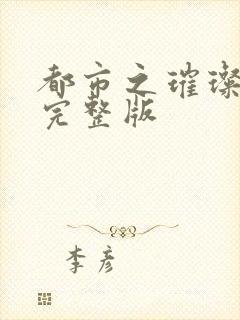 都市之璀璨
完整版
李彦